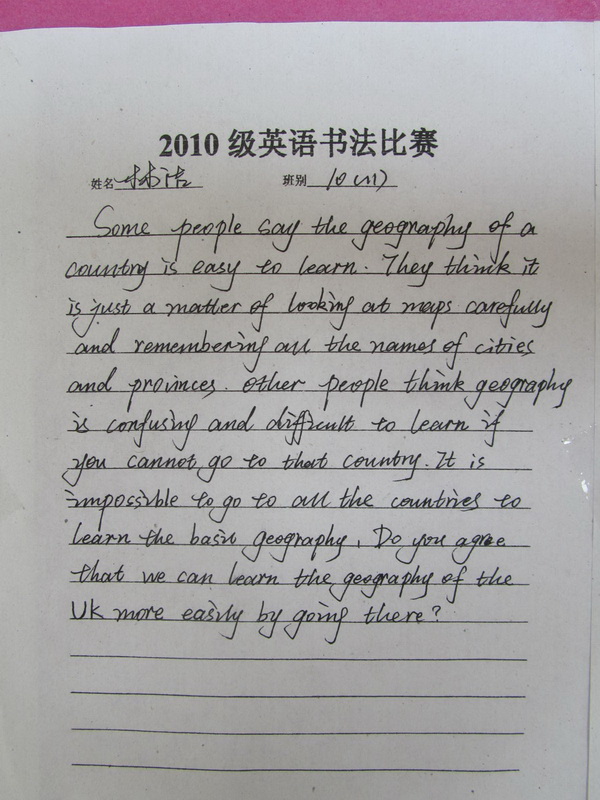 2010 级英语书法比赛
姓名 林洁 班别 10(11)
Some people say the geography of a
country is easy to learn. They think it
is just a matter of looking at maps carefully
and remembering all the names of cities
and provinces. Other people think geography
is confusing and difficult to learn if
you cannot go to that country. It is
impossible to go to all the countries to
learn the basic geography, Do you agree
that we can learn the geography of the
UK more easily by going there?